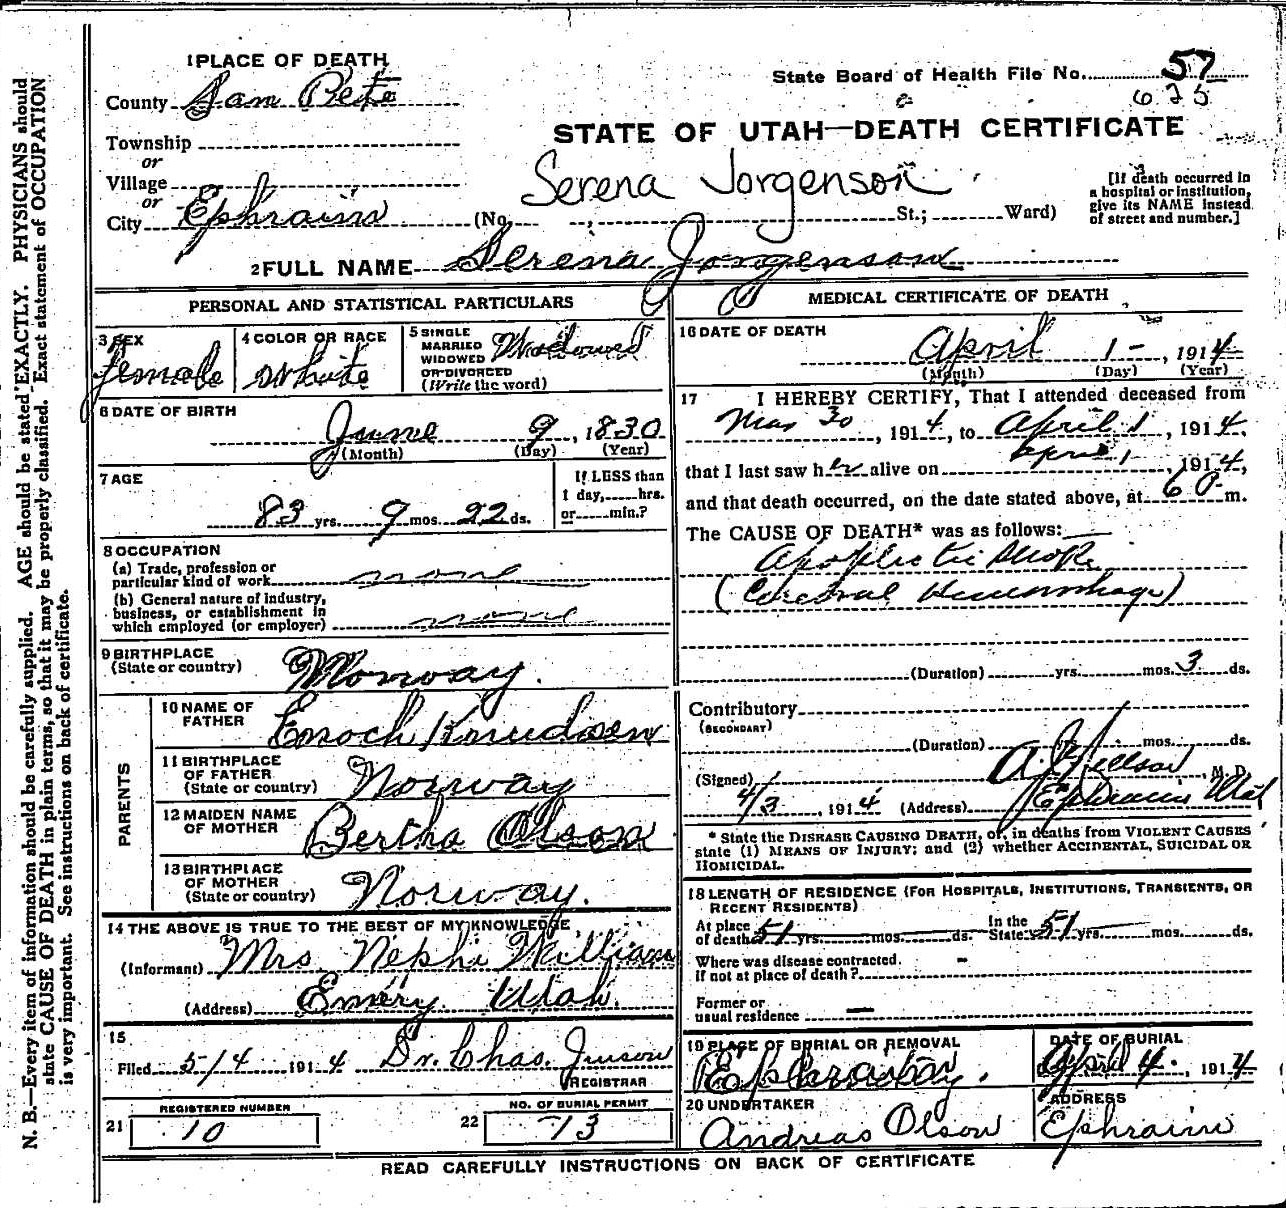 1 PLACE OF DEATH
County San Pete
State Board of Health File No. 57
625
Township
or
Village
or
City Ephraim
STATE OF UTAH—DEATH CERTIFICATE
Serena Jorgenson
(No. , St.; Ward)
[If death occurred in
a hospital or institution,
give its NAME instead
of street and number.]
2 FULL NAME Serena Jorgenson
PERSONAL AND STATISTICAL PARTICULARS
3 SEX
female
4 COLOR OR RACE
white
5 SINGLE
MARRIED
WIDOWED
OR DIVORCED
(Write the word)
Widowed
6 DATE OF BIRTH
June 9, 1830
(Month) (Day) (Year)
7 AGE
83 yrs. 9 mos. 22 ds.
If LESS than
1 day, hrs.
or min.?
8 OCCUPATION
(a) Trade, profession or
particular kind of work none
(b) General nature of industry,
business, or establishment in
which employed (or employer) none
9 BIRTHPLACE
(State or country) Norway.
PARENTS
10 NAME OF
FATHER Enoch Knudsen
11 BIRTHPLACE
OF FATHER
(State or country) Norway
12 MAIDEN NAME
OF MOTHER Bertha Olson
13 BIRTHPLACE
OF MOTHER
(State or country) Norway.
14 THE ABOVE IS TRUE TO THE BEST OF MY KNOWLEDGE
(Informant) Mrs. Nephi Williams
(Address) Emery Utah.
15
Filed 5/4 1914 Dr. Chas.
REGISTRAR
REGISTERED NUMBER
21 10
NO. OF BURIAL PERMIT
22 73
MEDICAL CERTIFICATE OF DEATH
16 DATE OF DEATH
April 1-, 1914
(Month) (Day) (Year)
17 I HEREBY CERTIFY, That I attended deceased from
Mar 30, 1914, to April 1, 1914,
that I last saw her alive on April 1, 1914,
and that death occurred, on the date stated above, at 6 P. m.
The CAUSE OF DEATH* was as follows:
Apoplectic
(Cerebral Hemorrhage)
(Duration) yrs. mos. 3 ds.
Contributory
(SECONDARY)
(Duration) mos. ds.
(Signed) M. D.
4/3, 1914 (Address) Ephraim Utah
* State the DISEASE CAUSING DEATH, or, in deaths from VIOLENT CAUSES
state (1) MEANS OF INJURY; and (2) whether ACCIDENTAL, SUICIDAL OR
HOMICIDAL.
18 LENGTH OF RESIDENCE (FOR HOSPITALS, INSTITUTIONS, TRANSIENTS, OR
RECENT RESIDENTS)
At place
of death 51 yrs. mos. ds. In the
State 51 yrs. mos. ds.
Where was disease contracted.
if not at place of death?
Former or
usual residence
19 PLACE OF BURIAL OR REMOVAL
Ephraim.
DATE OF BURIAL
April 4., 1914
20 UNDERTAKER
Andreas Olson
ADDRESS
Ephraim
READ CAREFULLY INSTRUCTIONS ON BACK OF CERTIFICATE
N. B.—Every item of information should be carefully supplied. AGE should be stated EXACTLY. PHYSICIANS should
state CAUSE OF DEATH in plain terms, so that it may be properly classified. Exact statement of OCCUPATION
is very important. See instructions on back of certificate.